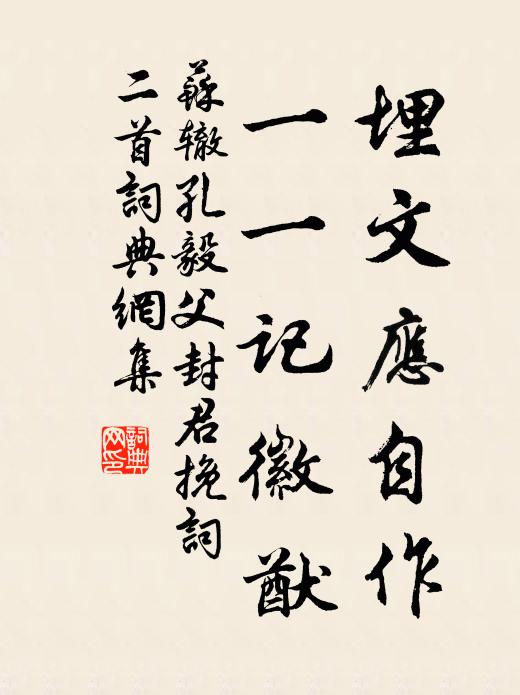 埋文應自作
一一記徽猷
蘇辙孔毅父封君挽詞
二首詞典網集
詞典
网印